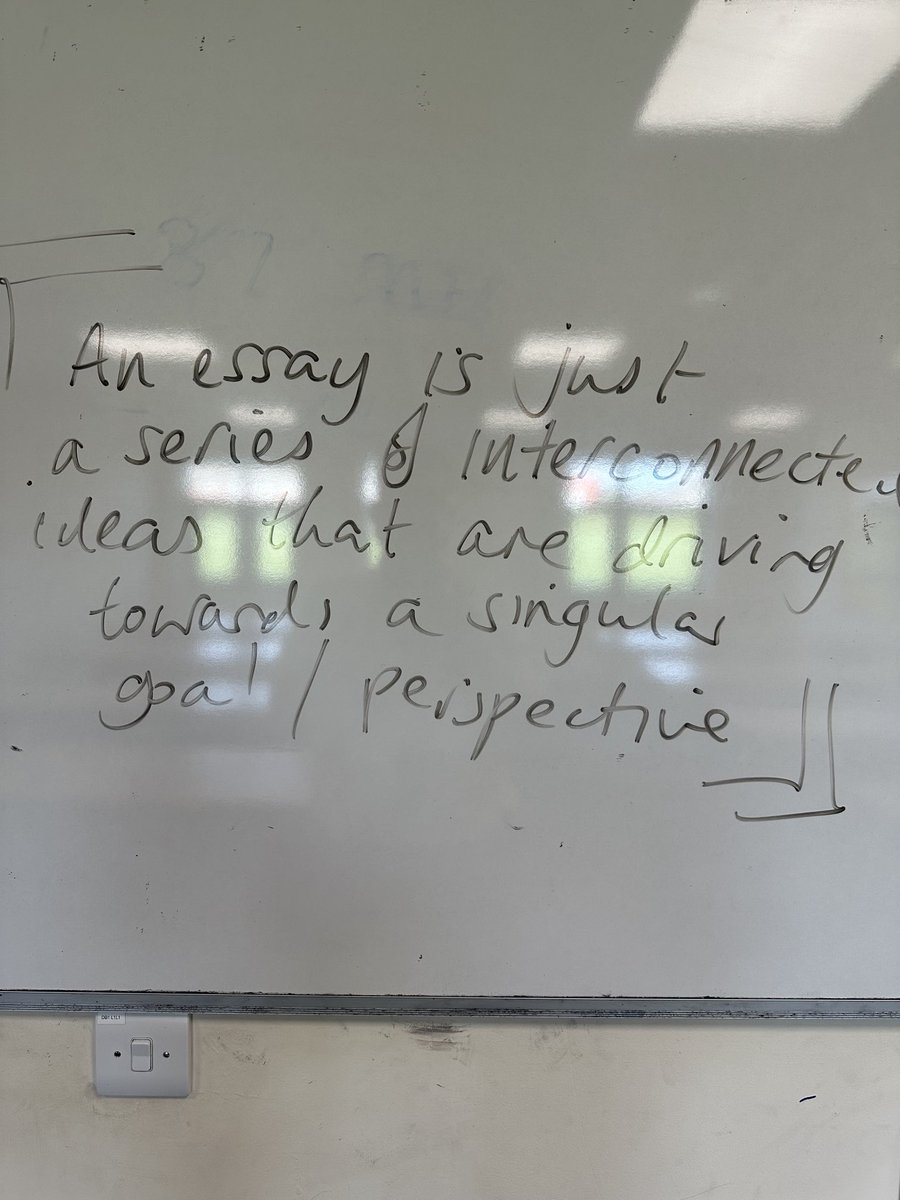 An essay is just
a series of interconnected
ideas that are driving
towards a singular
goal / perspective